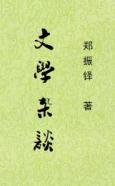 郑振铎 著
文學杂談